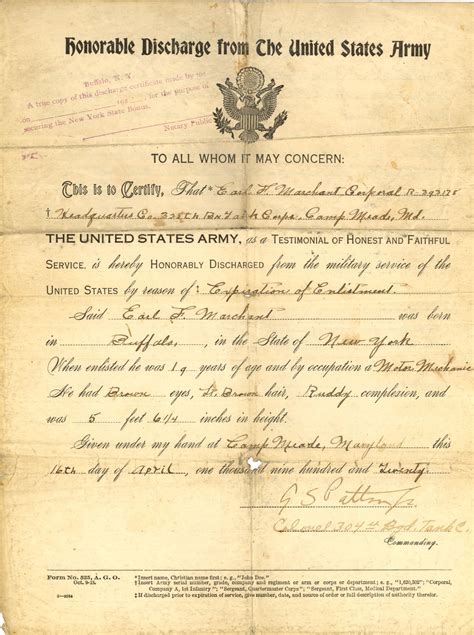 Honorable Discharge from The United States Army
Buffalo, N. Y.
A true copy of this discharge certificate made by me
on 192 for the purpose of
securing the New York State Bonus.
Notary Public
TO ALL WHOM IT MAY CONCERN:
This is to Certify, That * Earl F. Marchant Corporal R-393175
† Headquarters Co. 338th Bn Tank Corps, Camp Meade, Md.
THE UNITED STATES ARMY, as a TESTIMONIAL OF HONEST AND FAITHFUL
SERVICE, is hereby HONORABLY DISCHARGED from the military service of the
UNITED STATES by reason of ‡ Expiration of Enlistment.
Said Earl F. Marchant was born
in Buffalo, in the State of New York
When enlisted he was 19 years of age and by occupation a Motor Mechanic
He had Brown eyes, Lt. Brown hair, Ruddy complexion, and
was 5 feet 6 1/4 inches in height.
Given under my hand at Camp Meade, Maryland this
16th day of April, one thousand nine hundred and Twenty.
G S Patton Jr
Colonel 304th Tank C.
Commanding.
Form No. 525, A. G. O.
Oct. 9-18.
*Insert name, Christian name first; e. g., "John Doe."
†Insert Army serial number, grade, company and regiment or arm or corps or department; e. g., "1,620,302"; "Corporal,
Company A, 1st Infantry"; "Sergeant, Quartermaster Corps"; "Sergeant, First Class, Medical Department."
‡If discharged prior to expiration of service, give number, date, and source of order or full description of authority therefor.